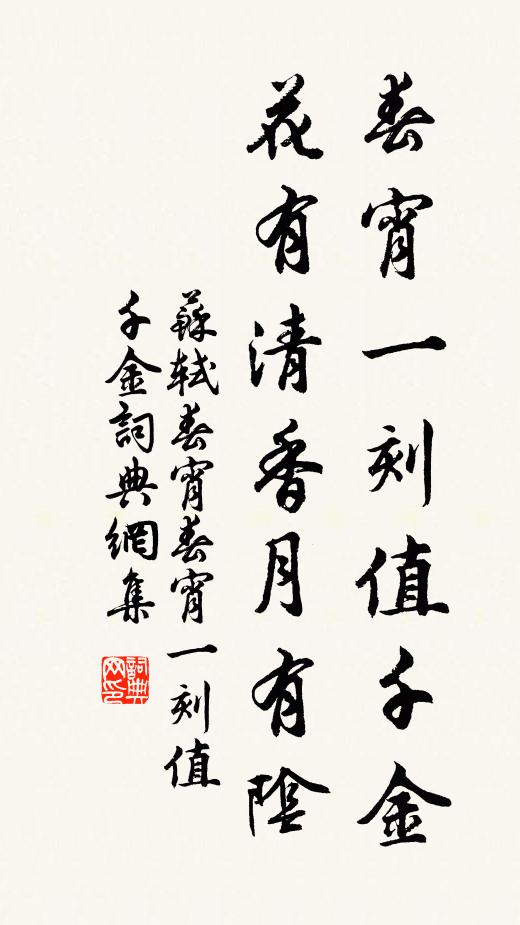 春宵一刻值千金
花有清香月有陰
蘇軾春宵春宵一刻值
千金詞典網集
詞典网印